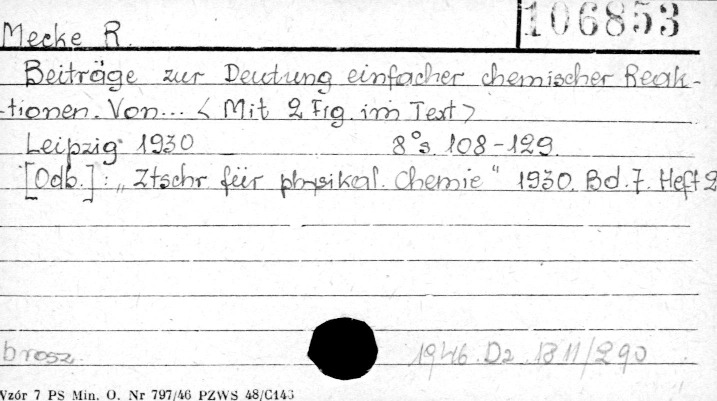 106853
Mecke R.
Beiträge zur Deutung einfacher chemischer Reak-
tionen. Von... < Mit 2 Fig. im Text >
Leipzig 1930 8° s. 108-129.
[Odb.]: „Ztschr für physikal. Chemie" 1930. Bd. 7. Heft 2
brosz. 1946. Dz. 1811/290
Wzór 7 PS Min. O. Nr 797/46 PZWS 48/C143